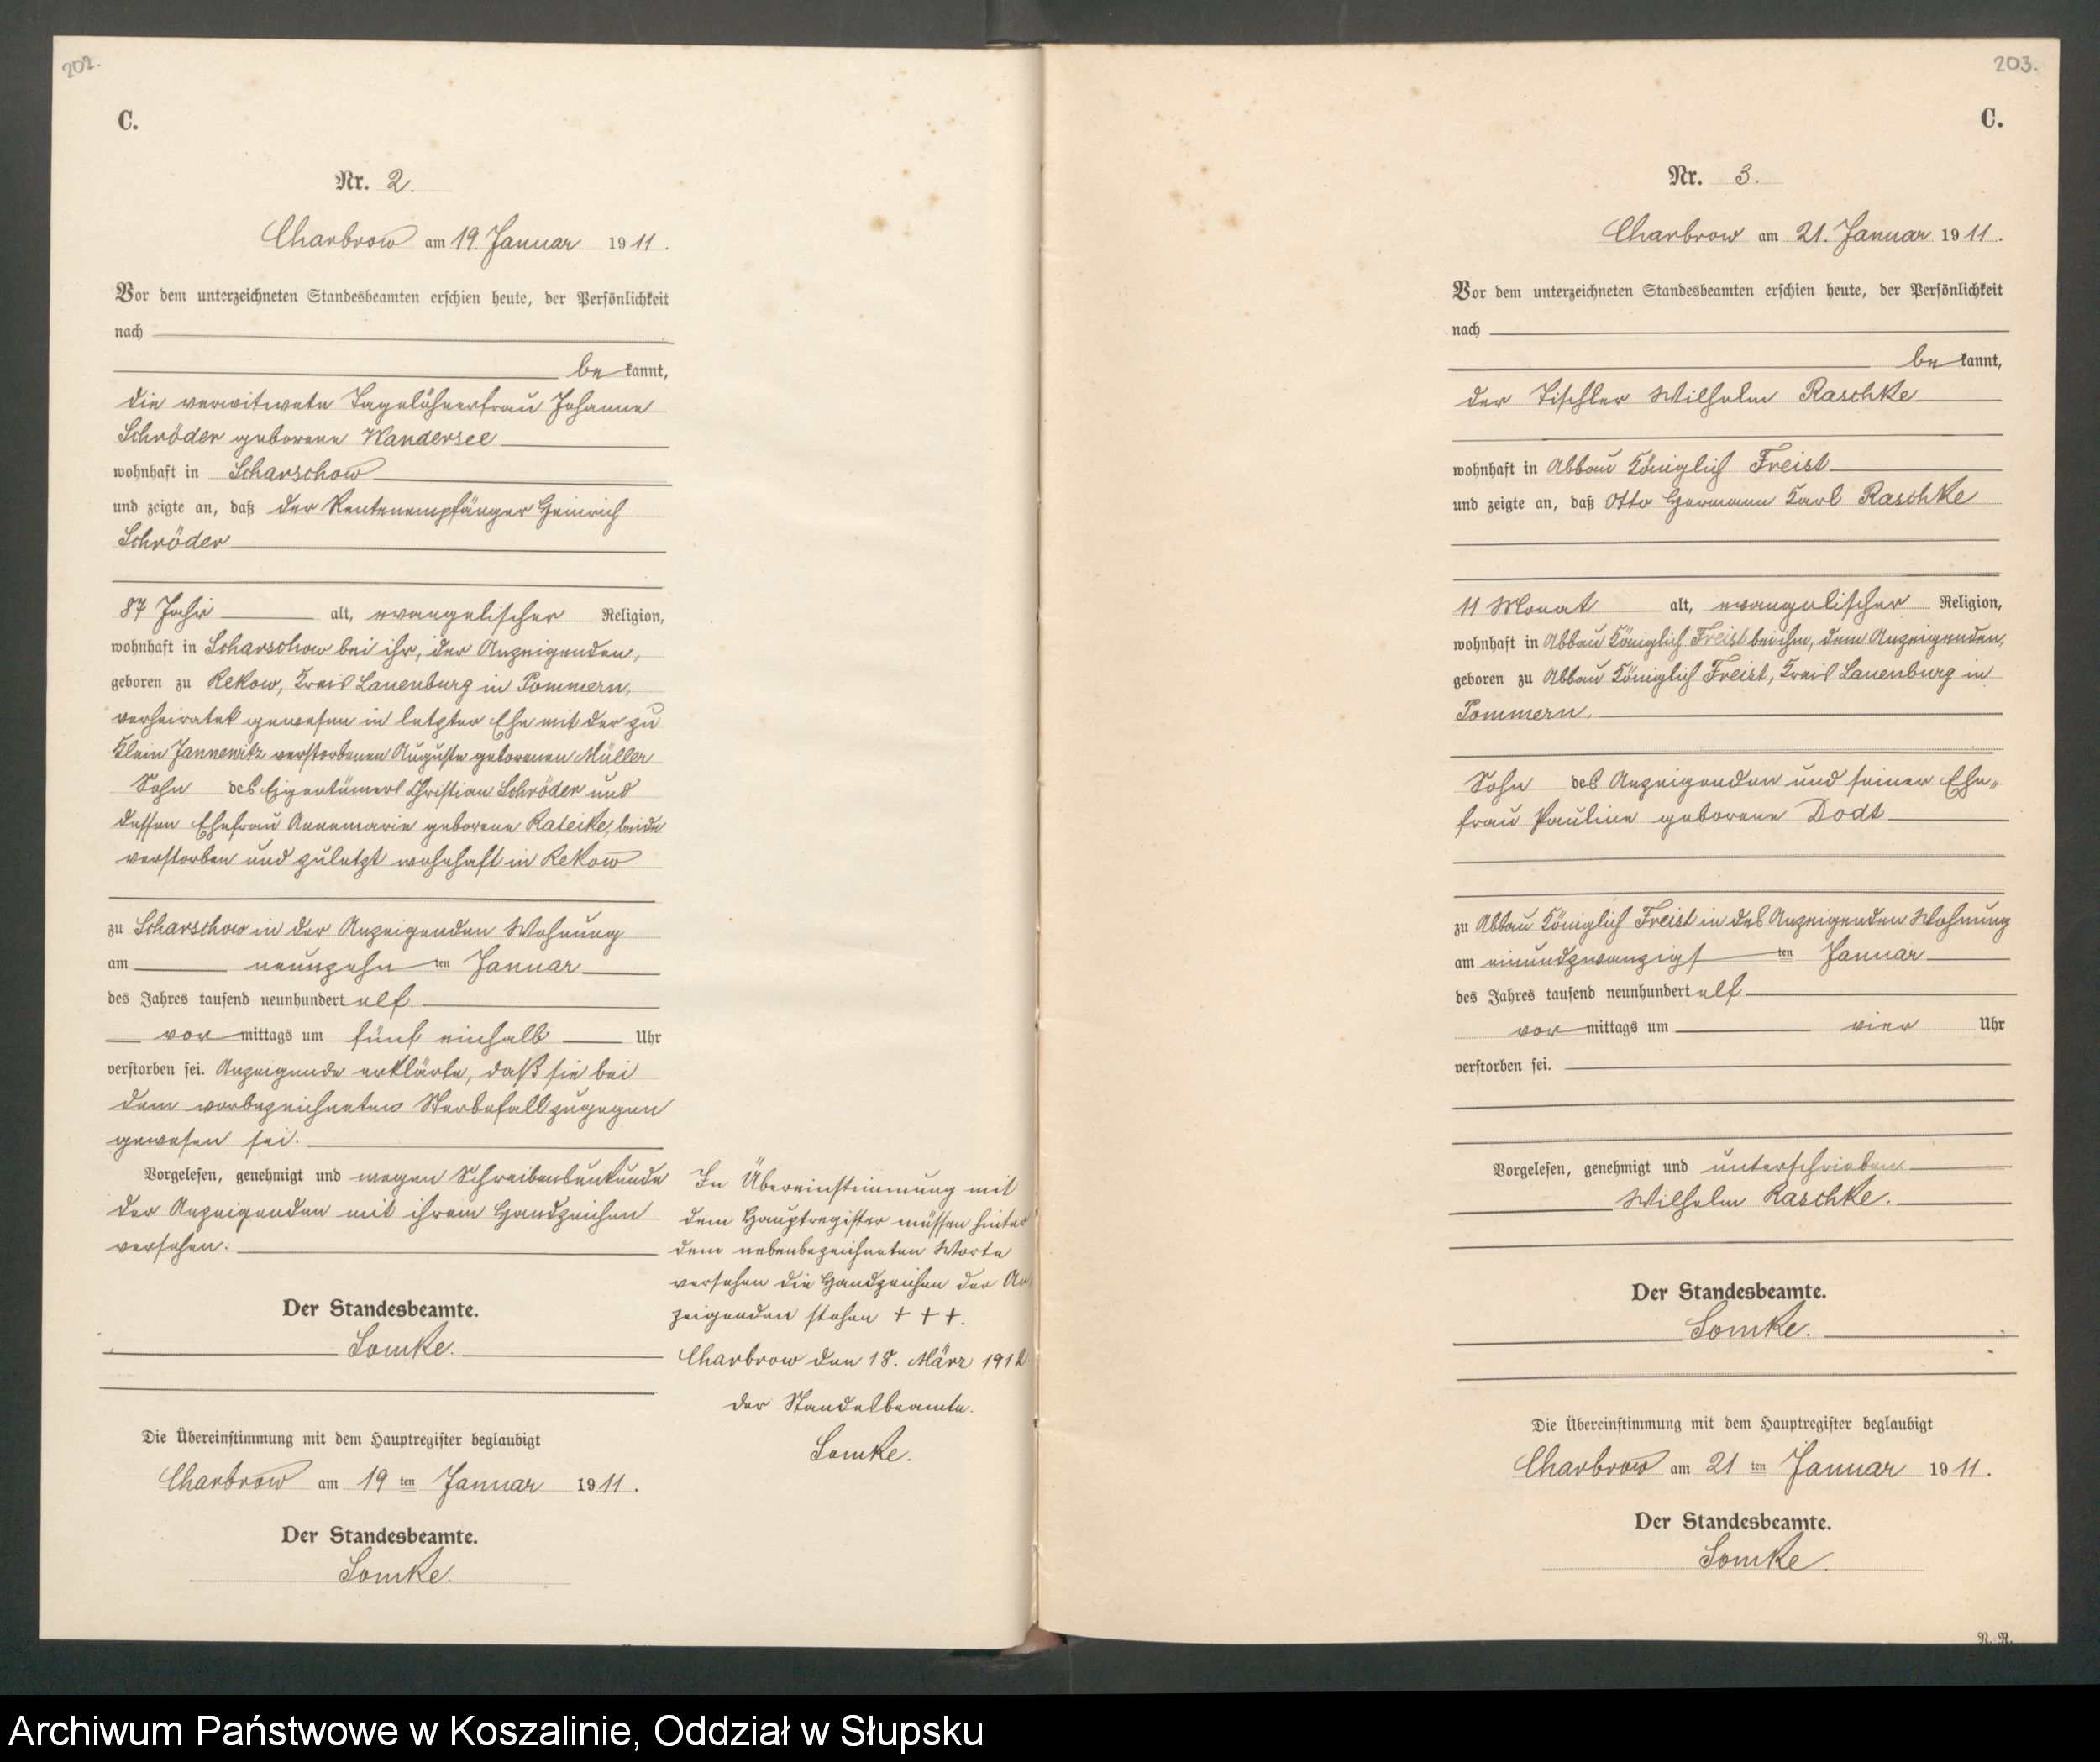 202.
C.
Nr. 2.
Charbrow am 19. Januar 1911.
Vor dem unterzeichneten Standesbeamten erschien heute, der Persönlichkeit
nach
be kannt,
die verwitwete Tagelöhnerfrau Johanne
Schröder geborene Wandersee
wohnhaft in Scharschow
und zeigte an, daß der Rentenempfänger Heinrich
Schröder
87 Jahr alt, evangelischer Religion,
wohnhaft in Scharschow bei ihr, der Anzeigenden,
geboren zu Rekow, Kreis Lauenburg in Pommern,
verheiratet gewesen in letzter Ehe mit der zu
Klein Jannewitz verstorbenen Auguste geborenen Müller
Sohn des Eigentümers Christian Schröder und
dessen Ehefrau Annemarie geborene Rateike, beide
verstorben und zuletzt wohnhaft in Rekow
zu Scharschow in der Anzeigenden Wohnung
am neunzehn ten Januar
des Jahres tausend neunhundert elf
vor mittags um fünf einhalb Uhr
verstorben sei. Anzeigende erklärte, daß sie bei
dem vorbezeichneten Sterbefall zugegen
gewesen sei.
Vorgelesen, genehmigt und wegen Schreibensunkunde
der Anzeigenden mit ihrem Handzeichen
versehen.
Der Standesbeamte.
Lomke.
Die Übereinstimmung mit dem Hauptregister beglaubigt
Charbrow am 19 ten Januar 1911.
Der Standesbeamte.
Lomke.
In Übereinstimmung mit
dem Hauptregister müssen hinter
dem nebenbezeichneten Worte
versehen die Handzeichen der An
zeigenden stehen + + +.
Charbrow den 18. März 1912
der Standesbeamte.
Lomke.
203.
C.
Nr. 3.
Charbrow am 21. Januar 1911.
Vor dem unterzeichneten Standesbeamten erschien heute, der Persönlichkeit
nach
be kannt,
der Tischler Wilhelm Raschke
wohnhaft in Abbau Königlich Freist
und zeigte an, daß Otto Hermann Karl Raschke
11 Monat alt, evangelischer Religion,
wohnhaft in Abbau Königlich Freist bei ihm, dem Anzeigenden,
geboren zu Abbau Königlich Freist, Kreis Lauenburg in
Pommern.
Sohn des Anzeigenden und seiner Ehe„
frau Pauline geborene Dodt
zu Abbau Königlich Freist in des Anzeigenden Wohnung
am einundzwanzigs ten Januar
des Jahres tausend neunhundert elf
vor mittags um vier Uhr
verstorben sei.
Vorgelesen, genehmigt und unterschrieben
Wilhelm Raschke.
Der Standesbeamte.
Lomke.
Die Übereinstimmung mit dem Hauptregister beglaubigt
Charbrow am 21 ten Januar 1911.
Der Standesbeamte.
Lomke.
N. R.
Archiwum Państwowe w Koszalinie, Oddział w Słupsku